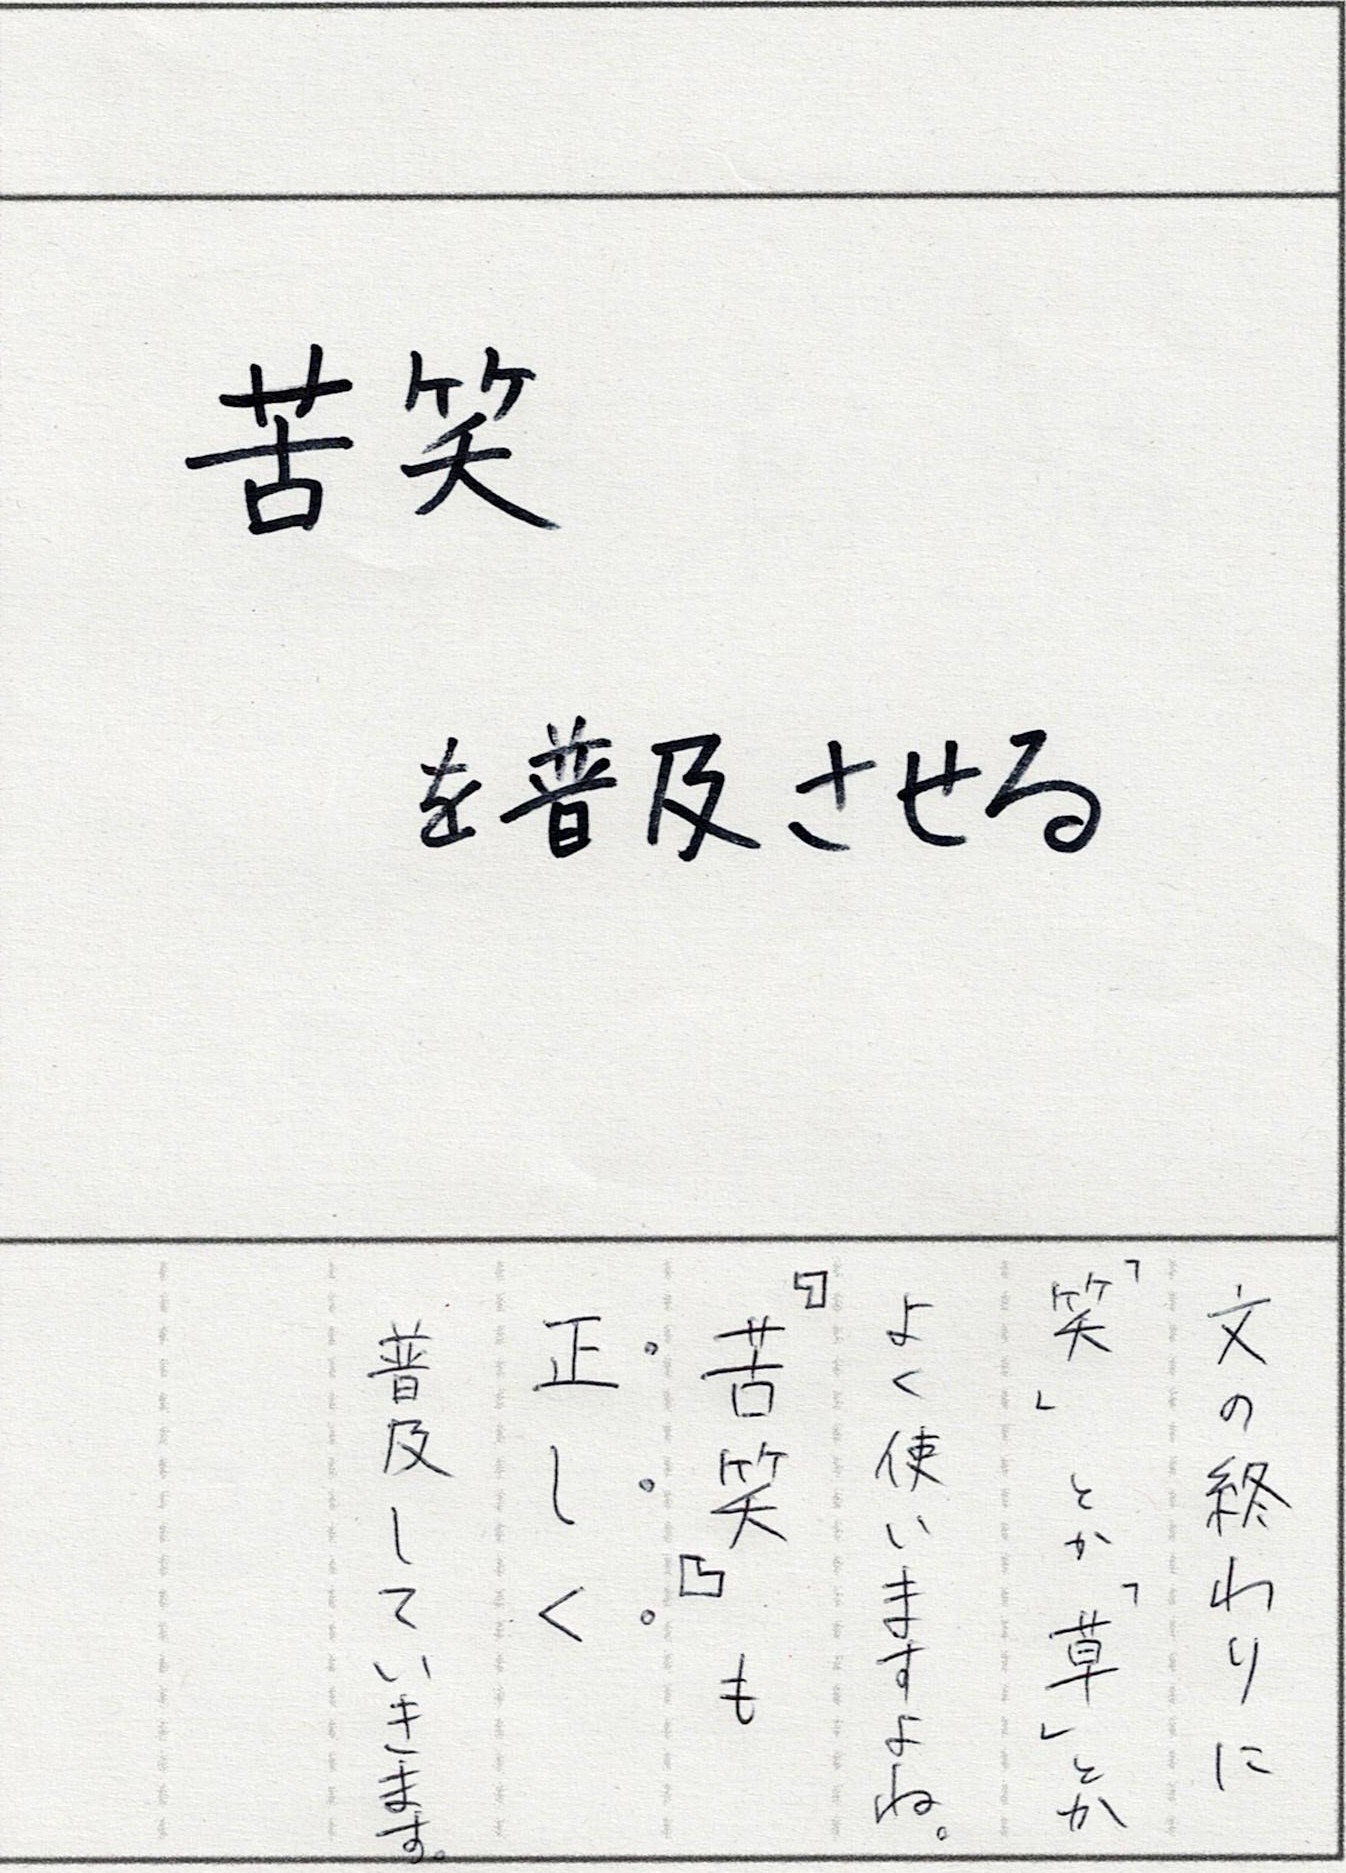 苦笑
を普及させる
文の終わりに
「笑」とか「草」とか
よく使いますよね。
『苦笑』も
正しく
普及していきます。